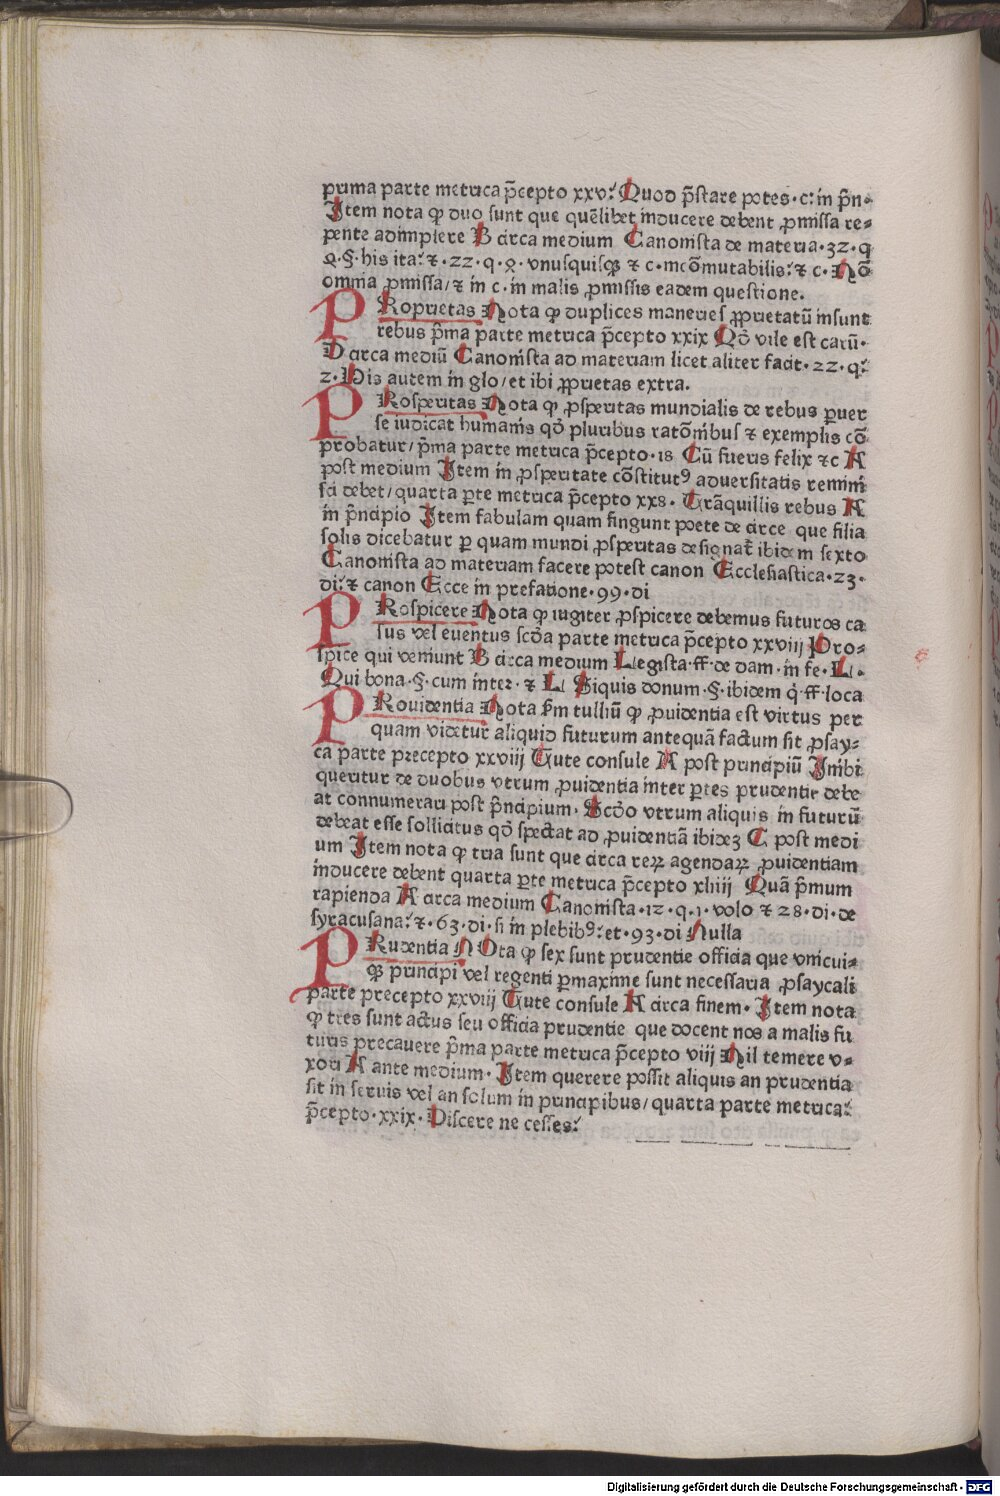 prima parte metrica p̄cepto xxv: Quod p̄stare potes · c: in p̄n·
Item nota ꝙ duo sunt que quēlibet inducere debent ꝓmissa re⸗
pente adimplere B circa medium Canonista de materia · 32 · q
2 · §· his ita: ⁊ · 22 · q · 2 · vnusquisqȝ ⁊ c · incōmutabilis: ⁊ c · Nō
omnia ꝓmissa/ ⁊ in c · in malis ꝓmissis eadem questione.
PRoprietas Nota ꝙ duplices maneries ꝓprietatū insunt
rebus p̄ma parte metrica p̄cepto xxix Qō vile est carū·
D circa mediū Canonista ad materiam licet aliter facit · 22 · q:
2 · His autem in glo/ et ibi ꝓprietas extra.
PRosperitas Nota ꝙ ꝓsperitas mundialis de rebus ꝑuer
se iudicat humanis qō pluribus ratōnibus ⁊ exemplis cō
probatur/ p̄ma parte metrica p̄cepto · 18 Cū fueris felix ⁊c A
post medium Item in ꝓsperitate cōstitutꝰ aduersitatis remini
sci debet/ quarta ꝑte metrica p̄cepto xx8 · Trāquillis rebus A
in p̄ncipio Item fabulam quam fingunt poete de circe que filia
solis dicebatur ꝑ quam mundi ꝓsperitas designat̄ ibidem sexto
Canonista ad materiam facere potest canon Ecclesiastica · 23 ·
di: ⁊ canon Ecce in prefatione · 99 · di
PRospicere Nota ꝙ iugiter ꝓspicere debemus futuros ca
sus vel euentus scōa parte metrica p̄cepto xxviij Pro⸗
spice qui veniunt B circa medium Legista · ff · de dam · in fe · L ·
Qui bona · §· cum inter · ⁊ L Siquis donum · §· ibidem q̇ ff · loca
PRouidentia Nota s̄m tulliū ꝙ ꝓuidentia est virtus per
quam videtur aliquid futurum antequā factum sit ꝓsay⸗
ca parte precepto xxviij Tute consule A post principiū Inibi
queritur de duobus vtrum ꝓuidentia inter ꝑtes prudentie debe
at connumerari post p̄ncipium · Scōo vtrum aliquis in futurū
debeat esse sollicitus qō spectat ad ꝓuidentiā ibideȝ C post medi
um Item nota ꝙ tria sunt que circa reꝝ agendaꝝ ꝓuidentiam
inducere debent quarta ꝑte metrica p̄cepto xliiij Quā p̄mum
rapienda A circa medium Canonista · 12 · q · 1 · volo ⁊ 28 · di · de
syracusana: ⁊ · 63 · di · si in plebibꝰ: et · 93 · di Nulla
PRudentia NOta ꝙ sex sunt prudentie officia que vnicui⸗
qȝ principi vel regenti ꝑmaxime sunt necessaria ꝓsaycali
parte precepto xxviij Tute consule A circa finem · Item nota
ꝙ tres sunt actus seu officia prudentie que docent nos a malis fu
turis precauere p̄ma parte metrica p̄cepto viij Nil temere v⸗
xori A ante medium · Item querere possit aliquis an prudentia
sit in seruis vel an solum in principibus/ quarta parte metrica:
p̄cepto · xxix · Discere ne cesses:
Digitalisierung gefördert durch die Deutsche Forschungsgemeinschaft - DFG